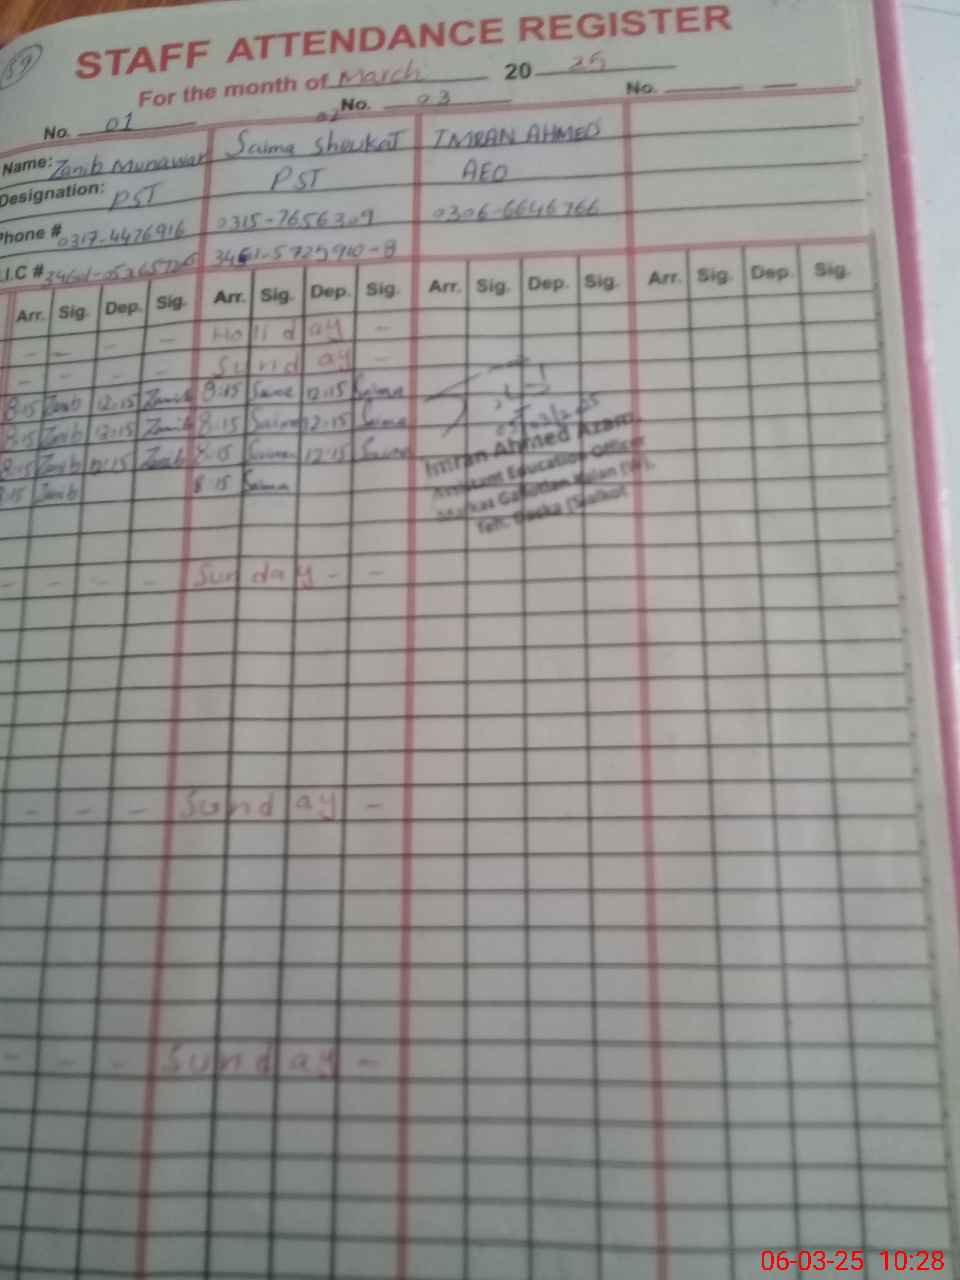 59
STAFF ATTENDANCE REGISTER
For the month of March 2025
No. 01 02 No. 03 No.
Name: Zanib Munawar Saima Shoukat IMRAN AHMED
Designation: PST PST AEO
Phone # 0317-4476916 0315-7656309 0306-6646766
I.C # 3461-5725910-8
Arr. Sig. Dep. Sig. Arr. Sig. Dep. Sig. Arr. Sig. Dep. Sig. Arr. Sig. Dep. Sig.
- - - - Holiday -
- - - - Sunday -
8:15 Zanib 12:15 Zanib 8:15 Saima 12:15 Saima
8:15 Zanib 12:15 Zanib 8:15 Saima 12:15 Saima
8:15 Zanib 12:15 Zanib 8:15 Saima 12:15 Saima
8:15 Zanib 8:15 Saima
Imran Ahmed Azam
Assistant Education Officer
Markaz
Teh. Daska (Sialkot
- - - - Sunday - -
- - - Sunday -
- - - Sunday -
06-03-25 10:28